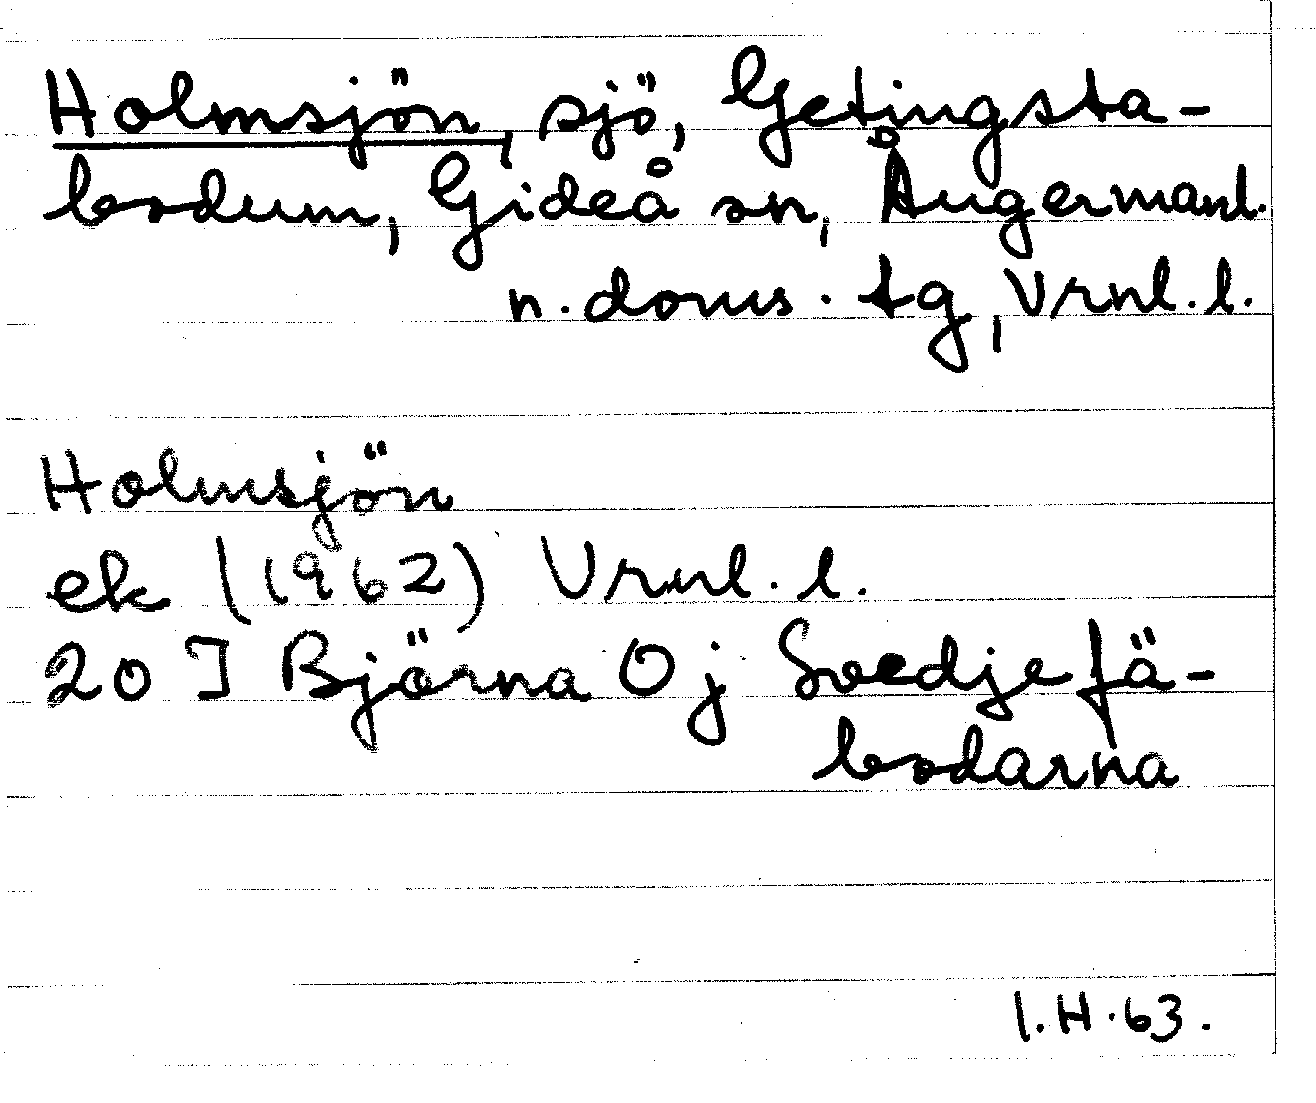 Holmsjön, sjö, Getingsta-
bodum, Gideå sn, Ångermanl.
n. doms. tg, Vrnl. l.
Holmsjön
ek (1962) Vrnl. l.
20 I Björna Oj Svedjefä-
bodarna
I. H. 63.